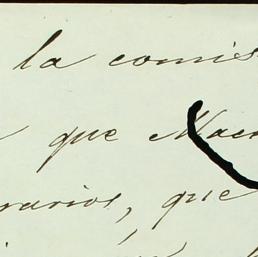 la comis
que Mac
rarios, que